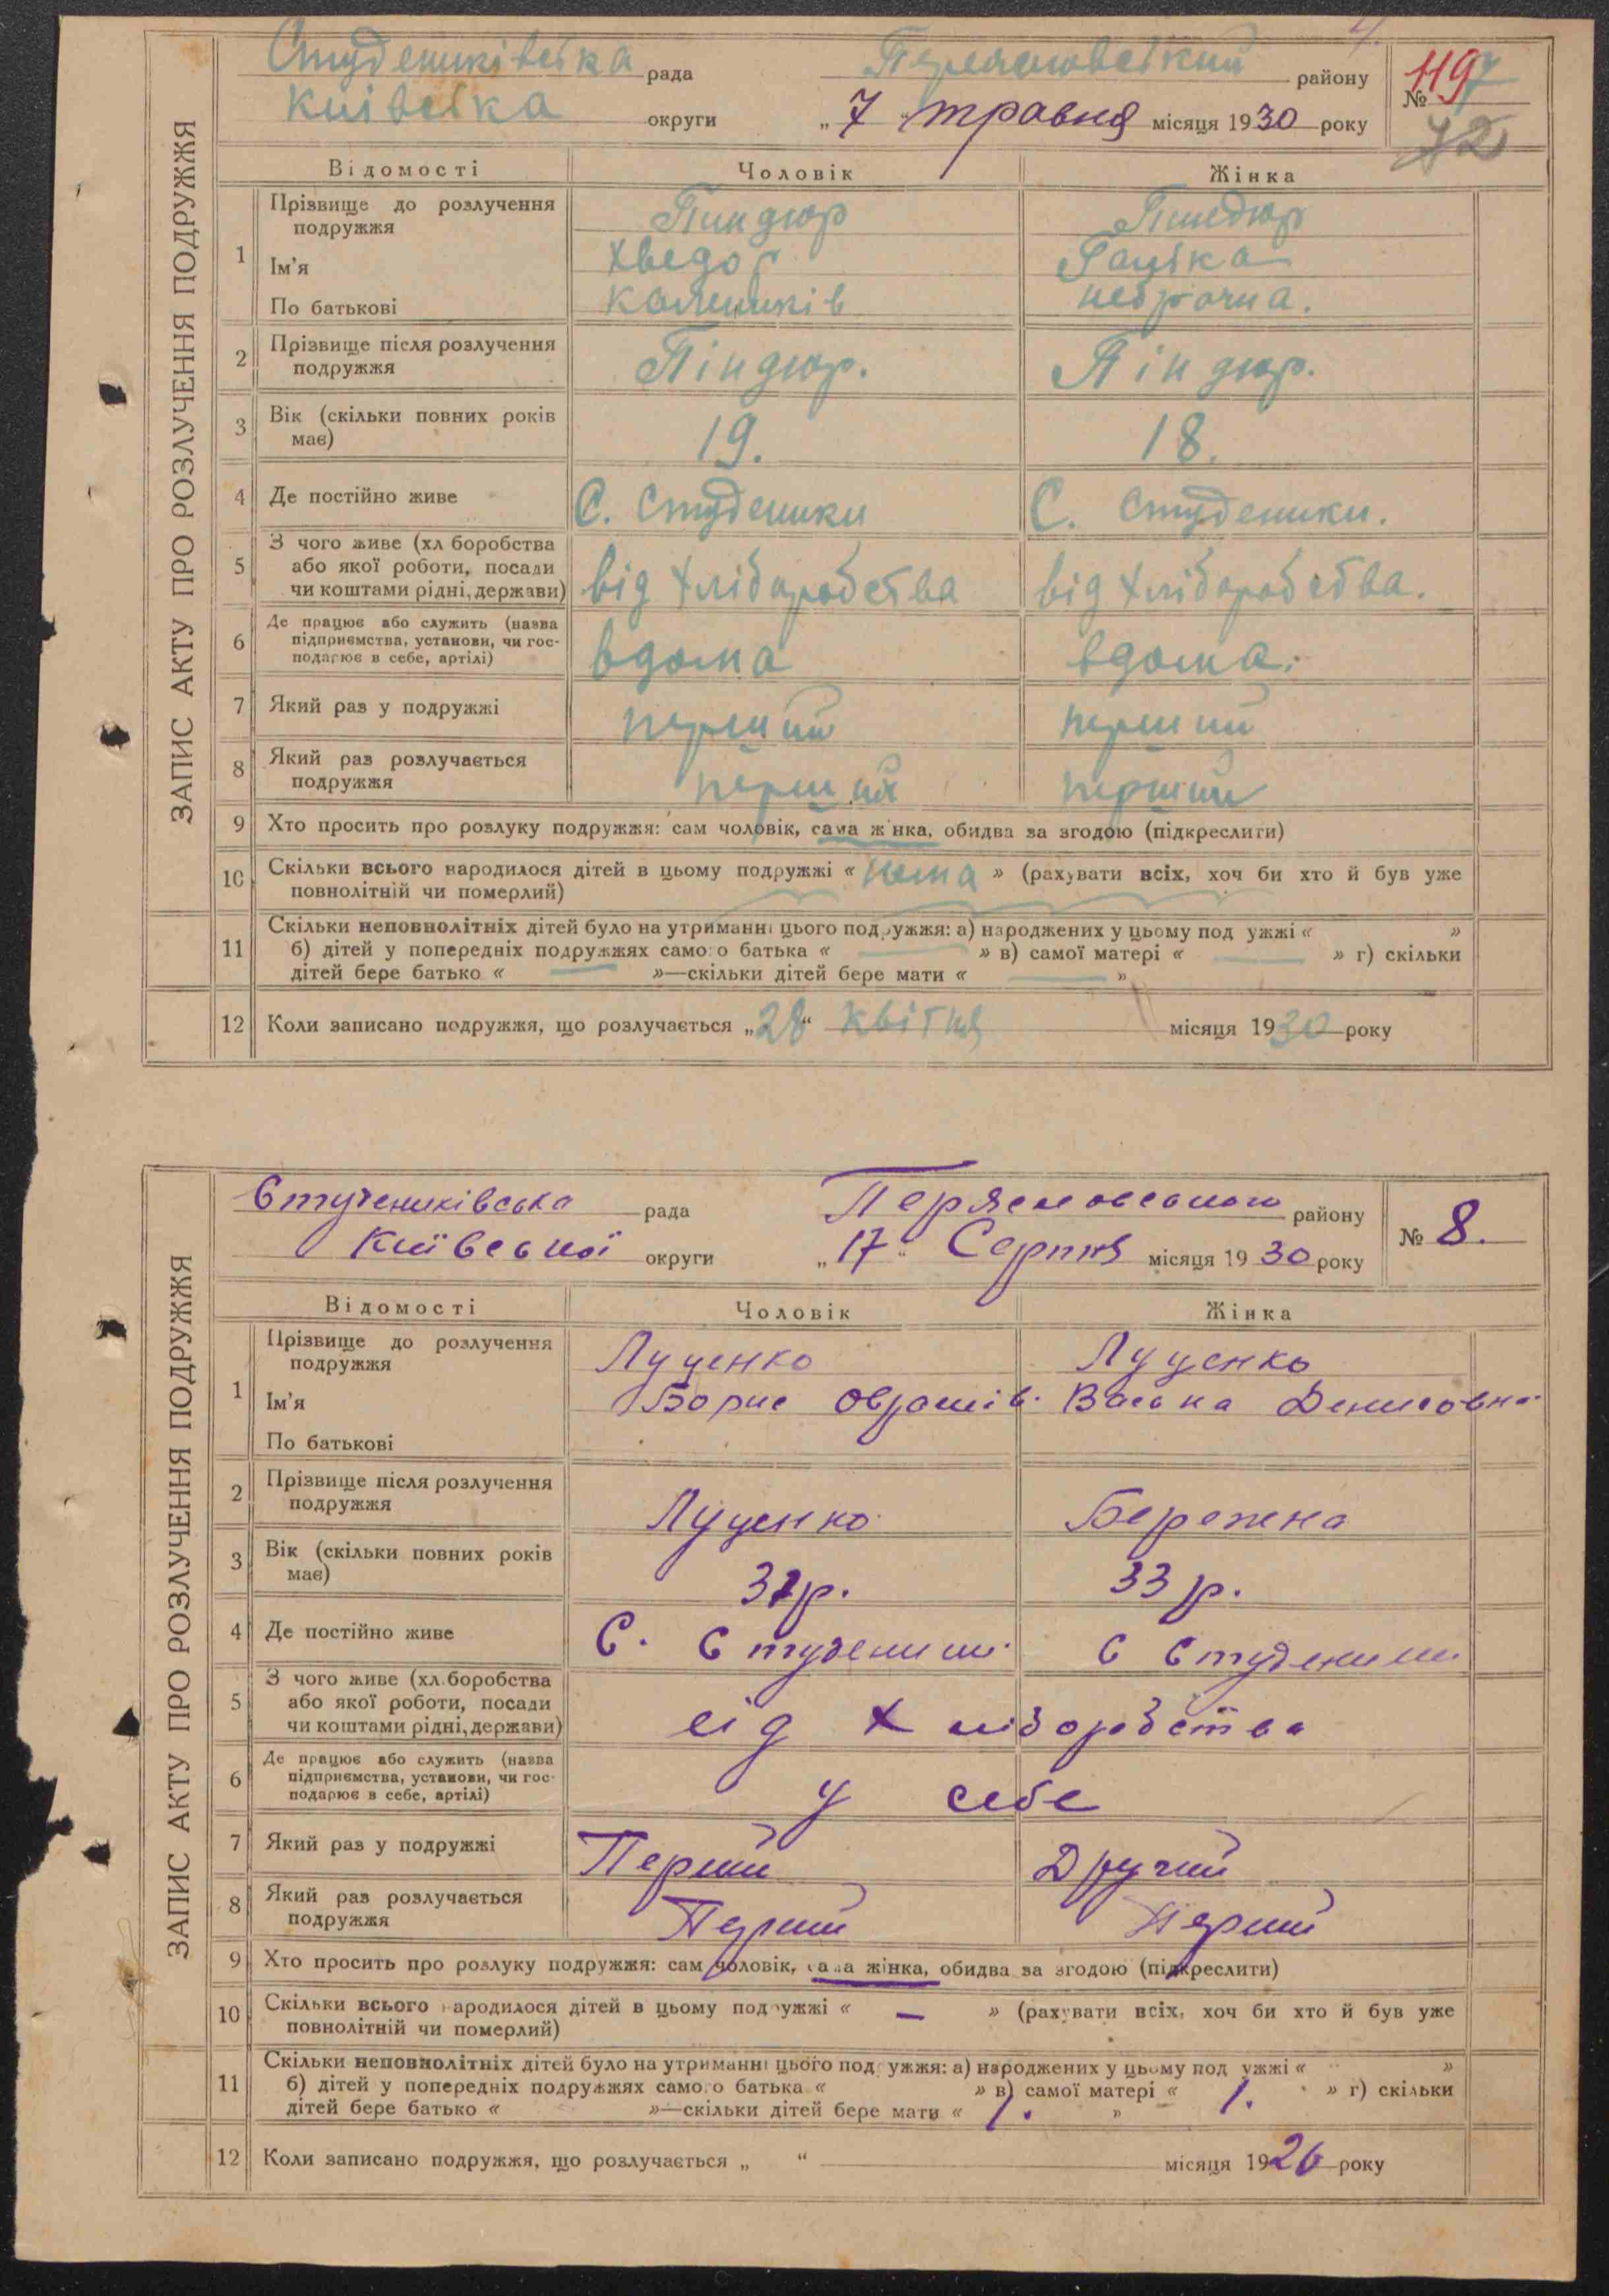 ЗАПИС АКТУ ПРО РОЗЛУЧЕННЯ ПОДРУЖЖЯ
Студениківська рада Переяславський району
Київська округи „7" травня місяця 1930 року
№ 7
72
Відомості Чоловік Жінка
1 Прізвище до розлучення подружжя Пиндюр Пиндюр
Ім'я Хведор Гапка
По батькові Калеників
2 Прізвище після розлучення подружжя Піндюр. Піндюр.
3 Вік (скільки повних років має) 19. 18.
4 Де постійно живе С. Студеники С. Студеники.
5 З чого живе (хл боробства або якої роботи, посади чи коштами рідні, держави) від хліборобства від хліборобства.
6 Де працює або служить (назва підприємства, установи, чи господарює в себе, артілі) вдома вдома.
7 Який раз у подружжі перший перший
8 Який раз розлучається подружжя перший перший
9 Хто просить про розлуку подружжя: сам чоловік, сама ж нка, обидва за згодою (підкреслити)
10 Скільки всього народилося дітей в цьому подружжі « нема » (рахувати всіх, хоч би хто й був уже
повнолітній чи померлий)
11 Скільки неповнолітніх дітей було на утриманні цього подружжя: а) народжених у цьому под ужжі « »
б) дітей у попередніх подружжях само о батька « — » в) самої матері « — » г) скільки
дітей бере батько « — »—скільки дітей бере мати « — »
12 Коли записано подружжя, що розлучається „28" квітня місяця 1930 року
ЗАПИС АКТУ ПРО РОЗЛУЧЕННЯ ПОДРУЖЖЯ
Студениківська рада Переяславського району
Київської округи „17" Серпня місяця 1930 року
№ 8.
Відомості Чоловік Жінка
1 Прізвище до розлучення подружжя Луценко Луценко
Ім'я Борис Васька Денисовна
По батькові
2 Прізвище після розлучення подружжя Луценко Бережна
3 Вік (скільки повних років має) 33 р.
4 Де постійно живе С. Студеники С Студеники
5 З чого живе (хл.боробства або якої роботи, посади чи коштами рідні, держави) від хліборобства
6 Де працює або служить (назва підприємства, установи, чи господарює в себе, артілі) у себе
7 Який раз у подружжі Перший Другий
8 Який раз розлучається подружжя Перший Перший
9 Хто просить про розлуку подружжя: сам чоловік, сама жінка, обидва за згодою (підкреслити)
10 Скільки всього народилося дітей в цьому подружжі « — » (рахувати всіх, хоч би хто й був уже
повнолітній чи померлий)
11 Скільки неповнолітніх дітей було на утриманні цього подружжя: а) народжених у цьому под ужжі « »
б) дітей у попередніх подружжях само о батька « » в) самої матері « 1. » г) скільки
дітей бере батько « »—скільки дітей бере мати « 1. »
12 Коли записано подружжя, що розлучається „ " місяця 1926 року